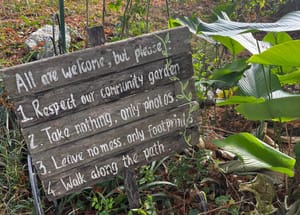 All are welcome, but please
1. Respect our community garden
2. Take nothing, only photos
3. Leave no mess, only footprints
4. Walk along the path